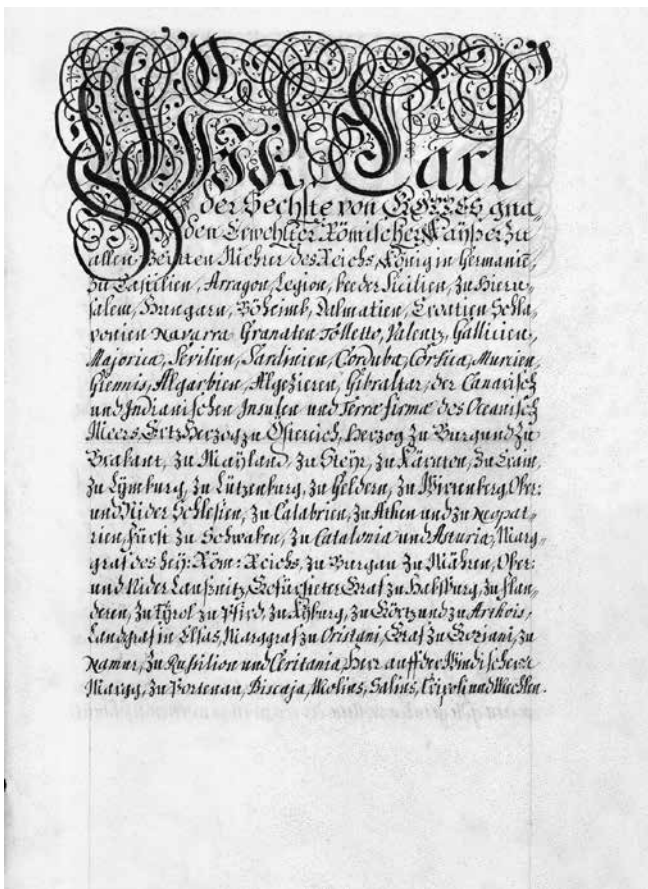 Wir Carl
der Sechste von GOTTES gna-
den Erwehlter Römischer Kayßer zu
allen Zeitten Mehrer des Reichs, König in Germanien,
zu Castilien, Arragon, Legion, beeder Sicilien, zu Hieru-
salem, Hungarn, Böheimb, Dalmatien, Croatien Schla-
vonien Navarra Granaten Tolletto, Valentz, Gallicien,
Majorica, Sevilien, Sardinien, Corduba, Corsica, Murcien,
Giennis, Algarbien, Algezieren, Gibraltar, der Canarisch
und Indianischen Insulen und Terræ firmæ des Oceanisch
Meers, Ertz Herzog zu Östereich, Herzog zu Burgund zu
Brabant, zu Mayland, zu Steyr, zu Kärnten, zu Crain,
zu Lymburg, zu Lützenburg, zu Geldern, zu Wirtenberg, Ober:
und Nider Schlesien, zu Calabrien, zu Athen und zu Neopat-
rien, Fürst zu Schwaben, zu Catalonia und Asturia, Marg-
graf des heÿ: Röm: Reichs, zu Burgau zu Mähren, Ober:
und Nider Laußnitz, Gefürsteter Graf zu Habsburg, zu Flan-
deren, zu Tÿrol zu Pfird, zu Kÿburg, zu Görtz und zu Arthois,
Landgraf in Elsas, Marggraf zu Oristani, Graf zu Goziani, zu
Namur, zu Rusilion und Ceritania, Herr auff der Windischen
Margg, zu Portenau, Biscaja, Molins, Salins, Tripoli und Mechlen.